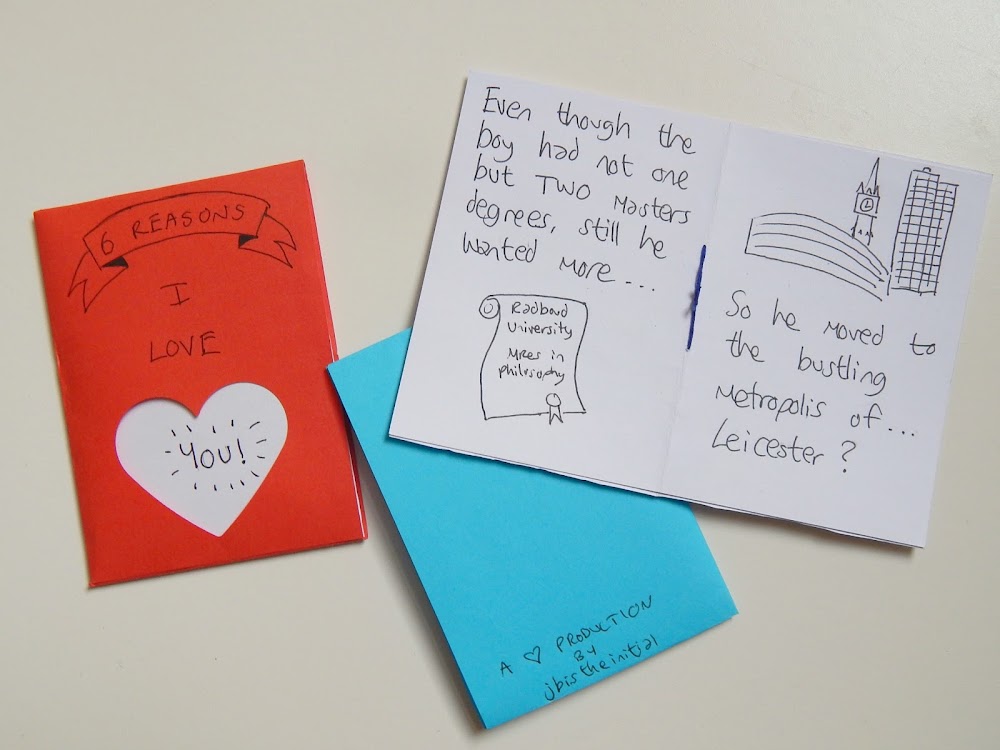 6 REASONS
I
LOVE
YOU!
Even though the
boy had not one
but TWO Masters
degrees, still he
wanted more...
Radboud
University
MRes in
philosophy
So he moved to
the bustling
Metropolis of...
Leicester?
A ♡ PRODUCTION
BY
jbistheinitial